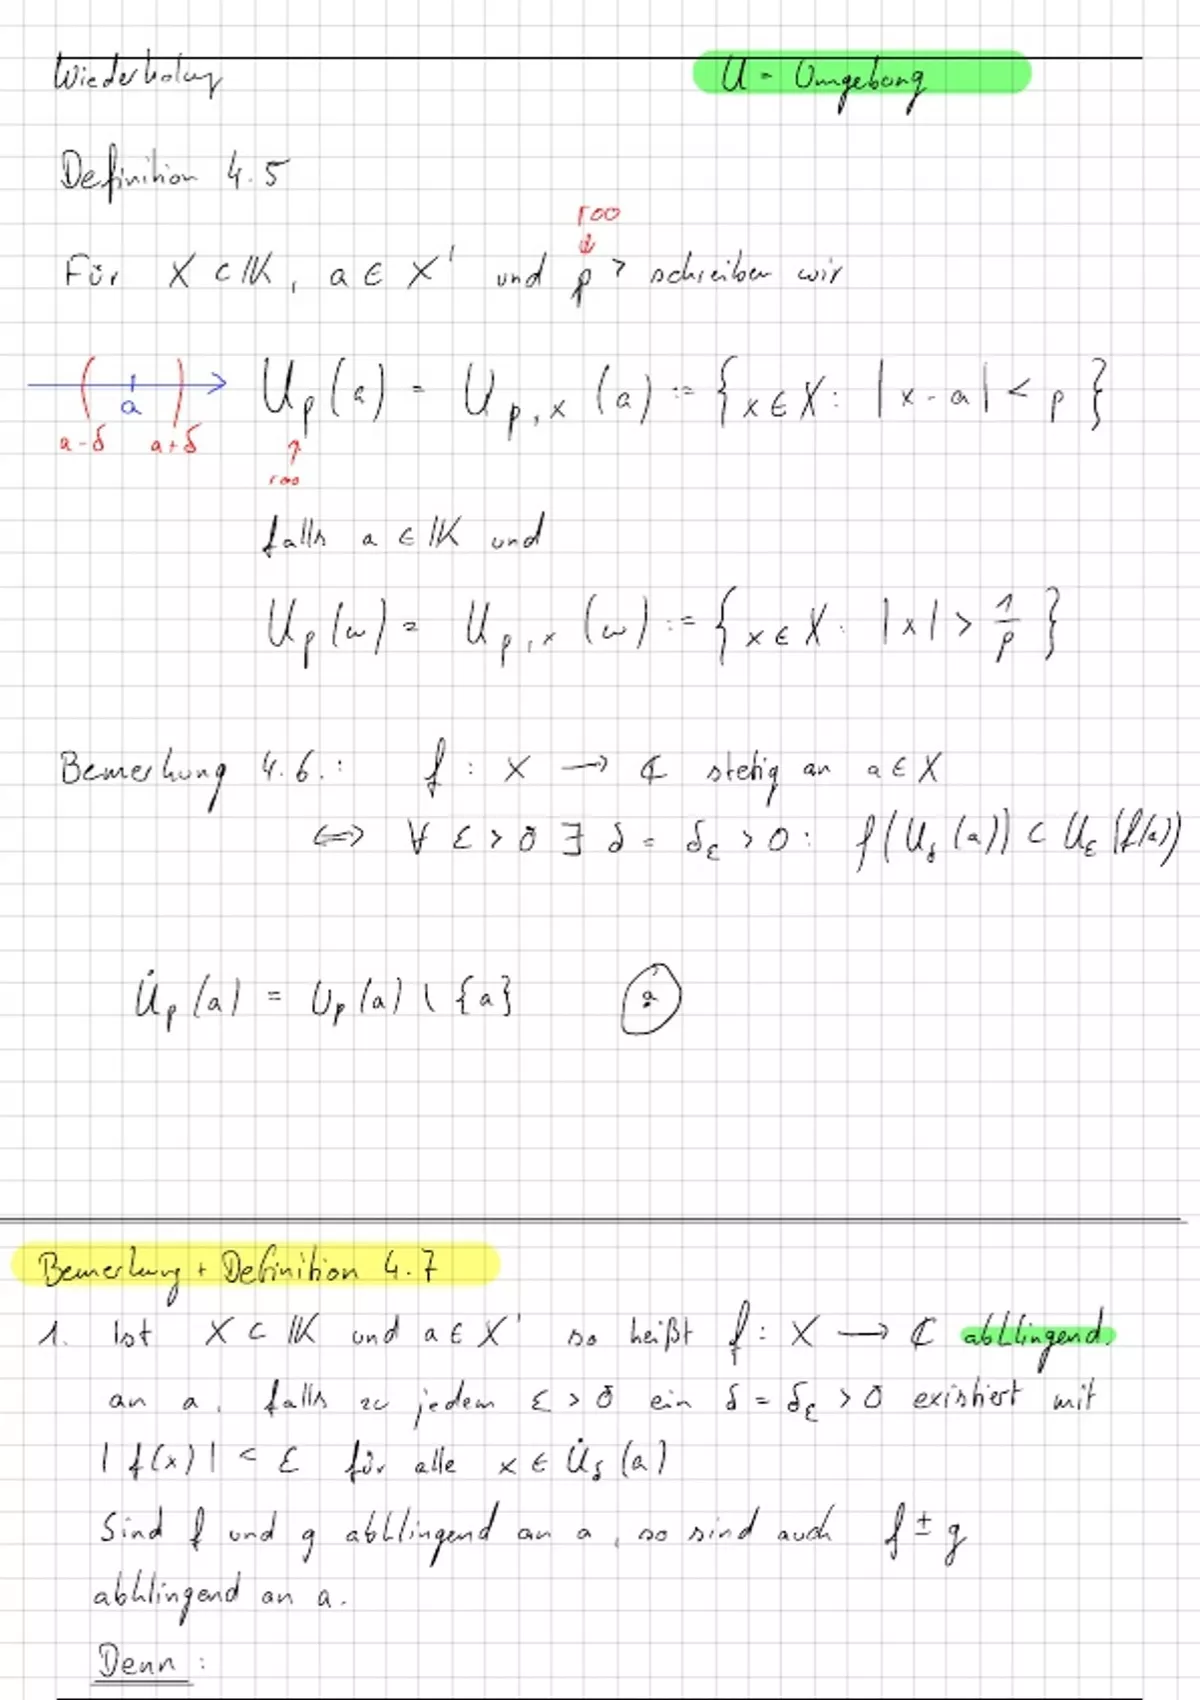 Wiederholung
U - Umgebung
Definition 4.5
roo
↓
Für X ⊂ 𝕂, a ∈ X' und p > schreiben wir
U_p(a) = U_{p,x}(a) := {x ∈ X: |x - a| < p}
a
a-δ a+δ
↑
roo
falls a ∈ 𝕂 und
U_p(∞) = U_{p,x}(∞) := {x ∈ X: |x| > 1/p}
Bemerkung 4.6.: f : X → ℂ stetig an a ∈ X
⇔ ∀ ε > 0 ∃ δ = δ_ε > 0: f(U_δ(a)) ⊂ U_ε(f(a))
U̇_p(a) = U_p(a) \ {a} a
Bemerkung + Definition 4.7
1. Ist X ⊂ 𝕂 und a ∈ X' so heißt f : X → ℂ abklingend.
an a, falls zu jedem ε > 0 ein δ = δ_ε > 0 existiert mit
|f(x)| < ε für alle x ∈ U̇_δ(a)
Sind f und g abklingend an a, so sind auch f ± g
abklingend an a.
Denn :